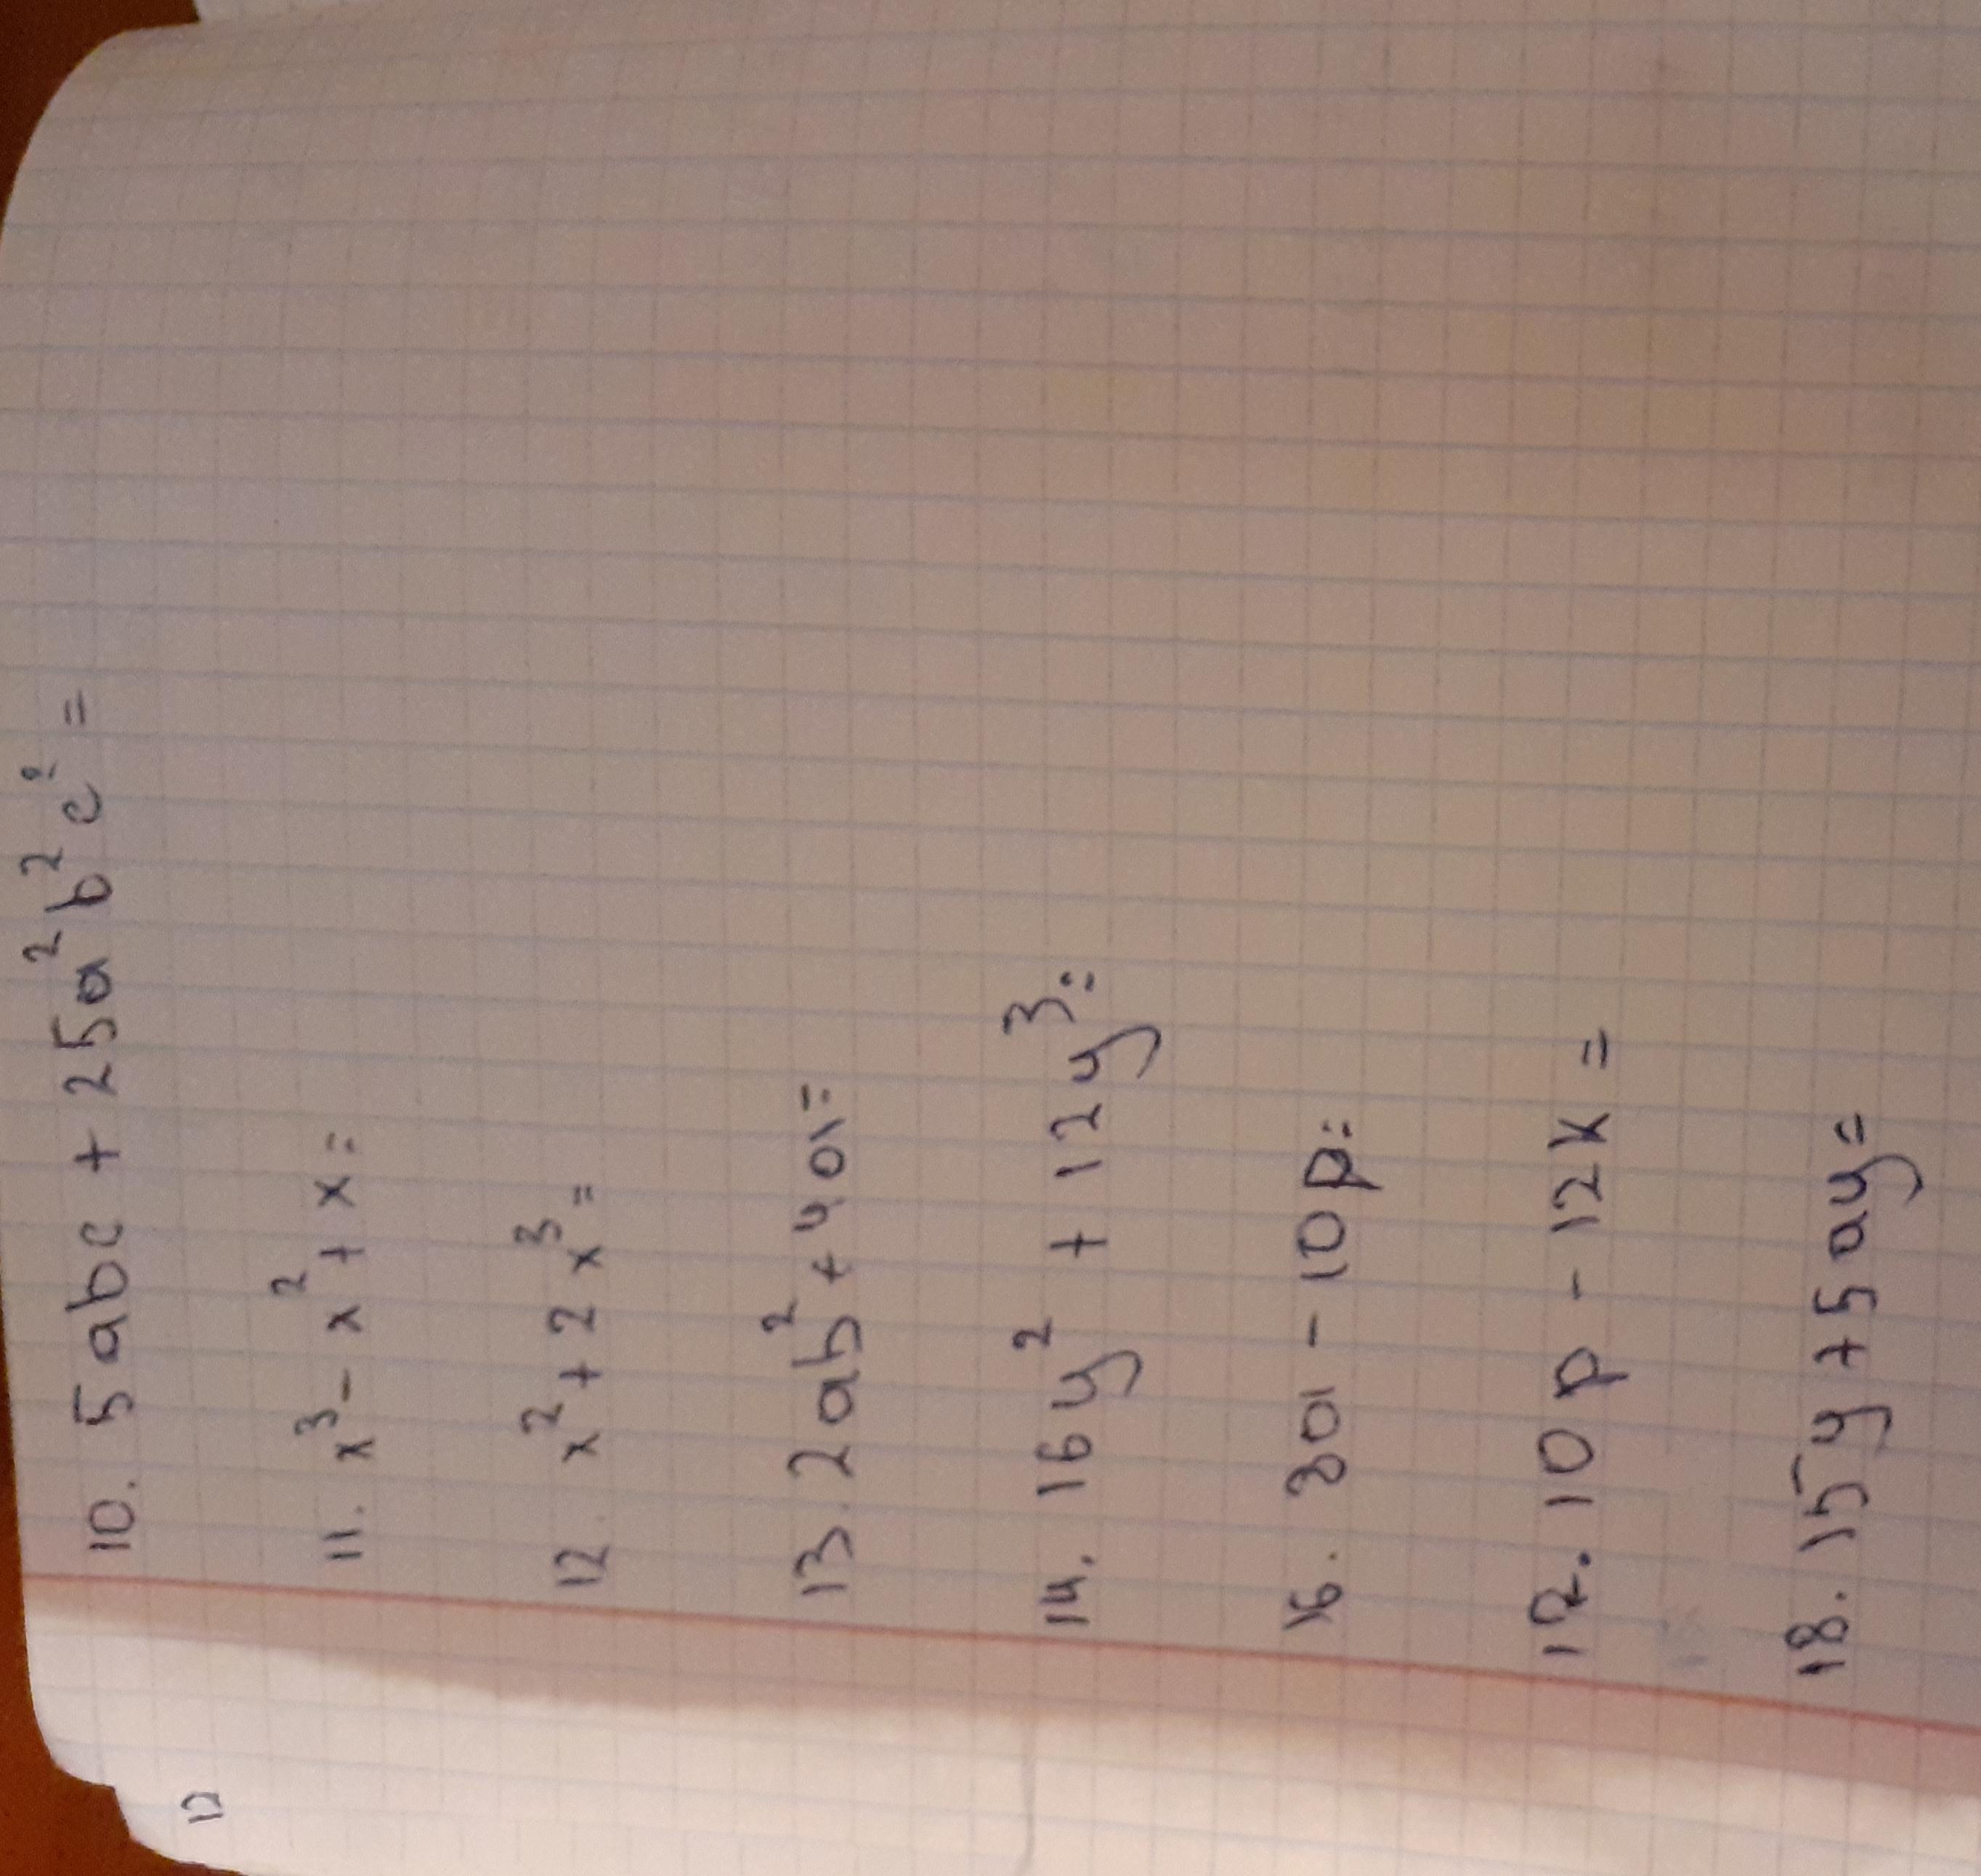 10. 5abc + 25a²b²c² =
11. x³ - x² + x =
12. x² + 2x³ =
13. 2ab² + 4a =
14. 16y² + 12y³ =
16. 8a - 10p =
17. 10p - 12k =
18. 15y + 5ay =